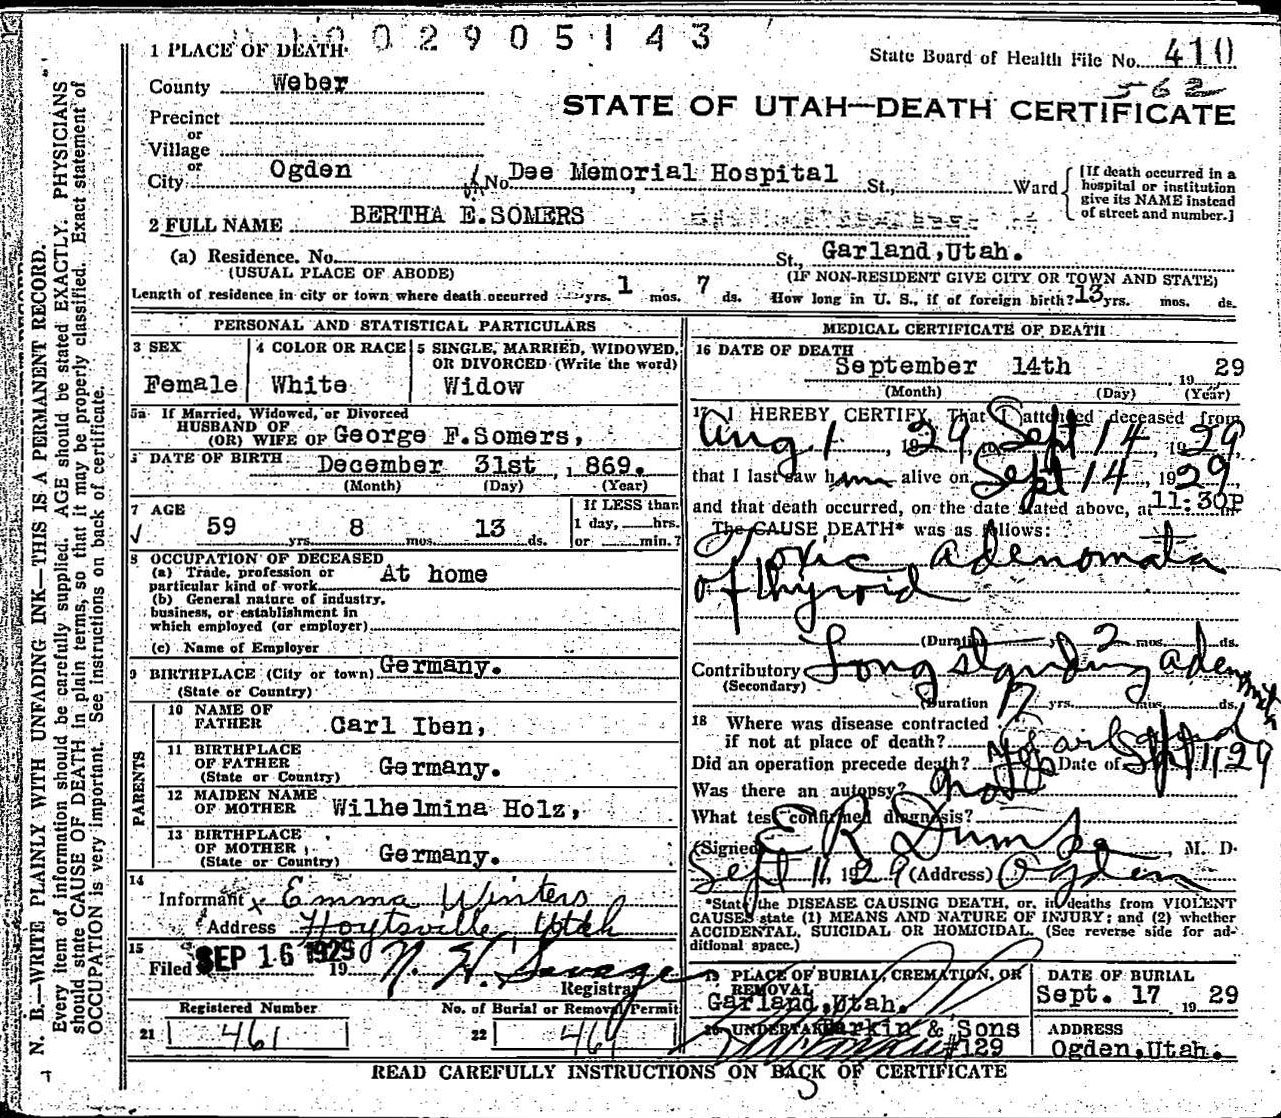 1 0 0 2 9 0 5 1 4 3
State Board of Health File No. 410
562
STATE OF UTAH—DEATH CERTIFICATE
1 PLACE OF DEATH
County Weber
Precinct
or
Village
or
City Ogden No. Dee Memorial Hospital St., Ward
[If death occurred in a
hospital or institution
give its NAME instead
of street and number.]
2 FULL NAME BERTHA E.SOMERS
(a) Residence. No. St., Garland,Utah.
(USUAL PLACE OF ABODE) (IF NON-RESIDENT GIVE CITY OR TOWN AND STATE)
Length of residence in city or town where death occurred yrs. 1 mos. 7 ds. How long in U. S., if of foreign birth? 13 yrs. mos. ds.
PERSONAL AND STATISTICAL PARTICULARS
3 SEX
Female
4 COLOR OR RACE
White
5 SINGLE, MARRIED, WIDOWED,
OR DIVORCED (Write the word)
Widow
5a If Married, Widowed, or Divorced
HUSBAND OF
(OR) WIFE OF George F.Somers,
DATE OF BIRTH December 31st, 1869.
(Month) (Day) (Year)
7 AGE
59 yrs. 8 mos. 13 ds.
If LESS than
1 day, hrs.
or min.?
8 OCCUPATION OF DECEASED
(a) Trade, profession or
particular kind of work At home
(b) General nature of industry,
business, or establishment in
which employed (or employer)
(c) Name of Employer
9 BIRTHPLACE (City or town) Germany.
(State or Country)
PARENTS
10 NAME OF
FATHER Carl Iben,
11 BIRTHPLACE
OF FATHER Germany.
(State or Country)
12 MAIDEN NAME
OF MOTHER Wilhelmina Holz,
13 BIRTHPLACE
OF MOTHER
(State or Country) Germany.
14
Informant x Emma Winters
Address Hoytsville, Utah
15
Filed SEP 16 1929 19 N. H. Savage
Registrar
Registered Number
21 461
No. of Burial or Removal Permit
22 461
MEDICAL CERTIFICATE OF DEATH
16 DATE OF DEATH
September 14th 19 29
(Month) (Day) (Year)
17 I HEREBY CERTIFY, That I attended deceased from
Aug 1, 1929, to Sept 14, 1929
that I last saw h alive on Sept 14, 1929
and that death occurred, on the date stated above, at 11:30P m.
The CAUSE DEATH* was as follows:
Toxic adenomata
of thyroid
(Duration yrs. 2 mos. ds.
Contributory Long standing adenomata
(Secondary)
(Duration 17 yrs. mos. ds.
18 Where was disease contracted
if not at place of death? Garland
Did an operation precede death? yes Date of Sept 11 29
Was there an autopsy? no
What test confirmed diagnosis?
(Signed) E R Dumke, M. D.
Sept 11, 1929 (Address) Ogden
*State the DISEASE CAUSING DEATH, or, in deaths from VIOLENT
CAUSES state (1) MEANS AND NATURE OF INJURY; and (2) whether
ACCIDENTAL, SUICIDAL OR HOMICIDAL. (See reverse side for ad-
ditional space.)
19 PLACE OF BURIAL, CREMATION, OR
REMOVAL
Garland,Utah.
DATE OF BURIAL
Sept. 17 19 29
20 UNDERTAKER Larkin & Sons
#129
ADDRESS
Ogden,Utah.
READ CAREFULLY INSTRUCTIONS ON BACK OF CERTIFICATE
N. B.—WRITE PLAINLY WITH UNFADING INK—THIS IS A PERMANENT RECORD.
Every item of information should be carefully supplied. AGE should be stated EXACTLY. PHYSICIANS
should state CAUSE OF DEATH in plain terms, so that it may be properly classified. Exact statement of
OCCUPATION is very important. See instructions on back of certificate.